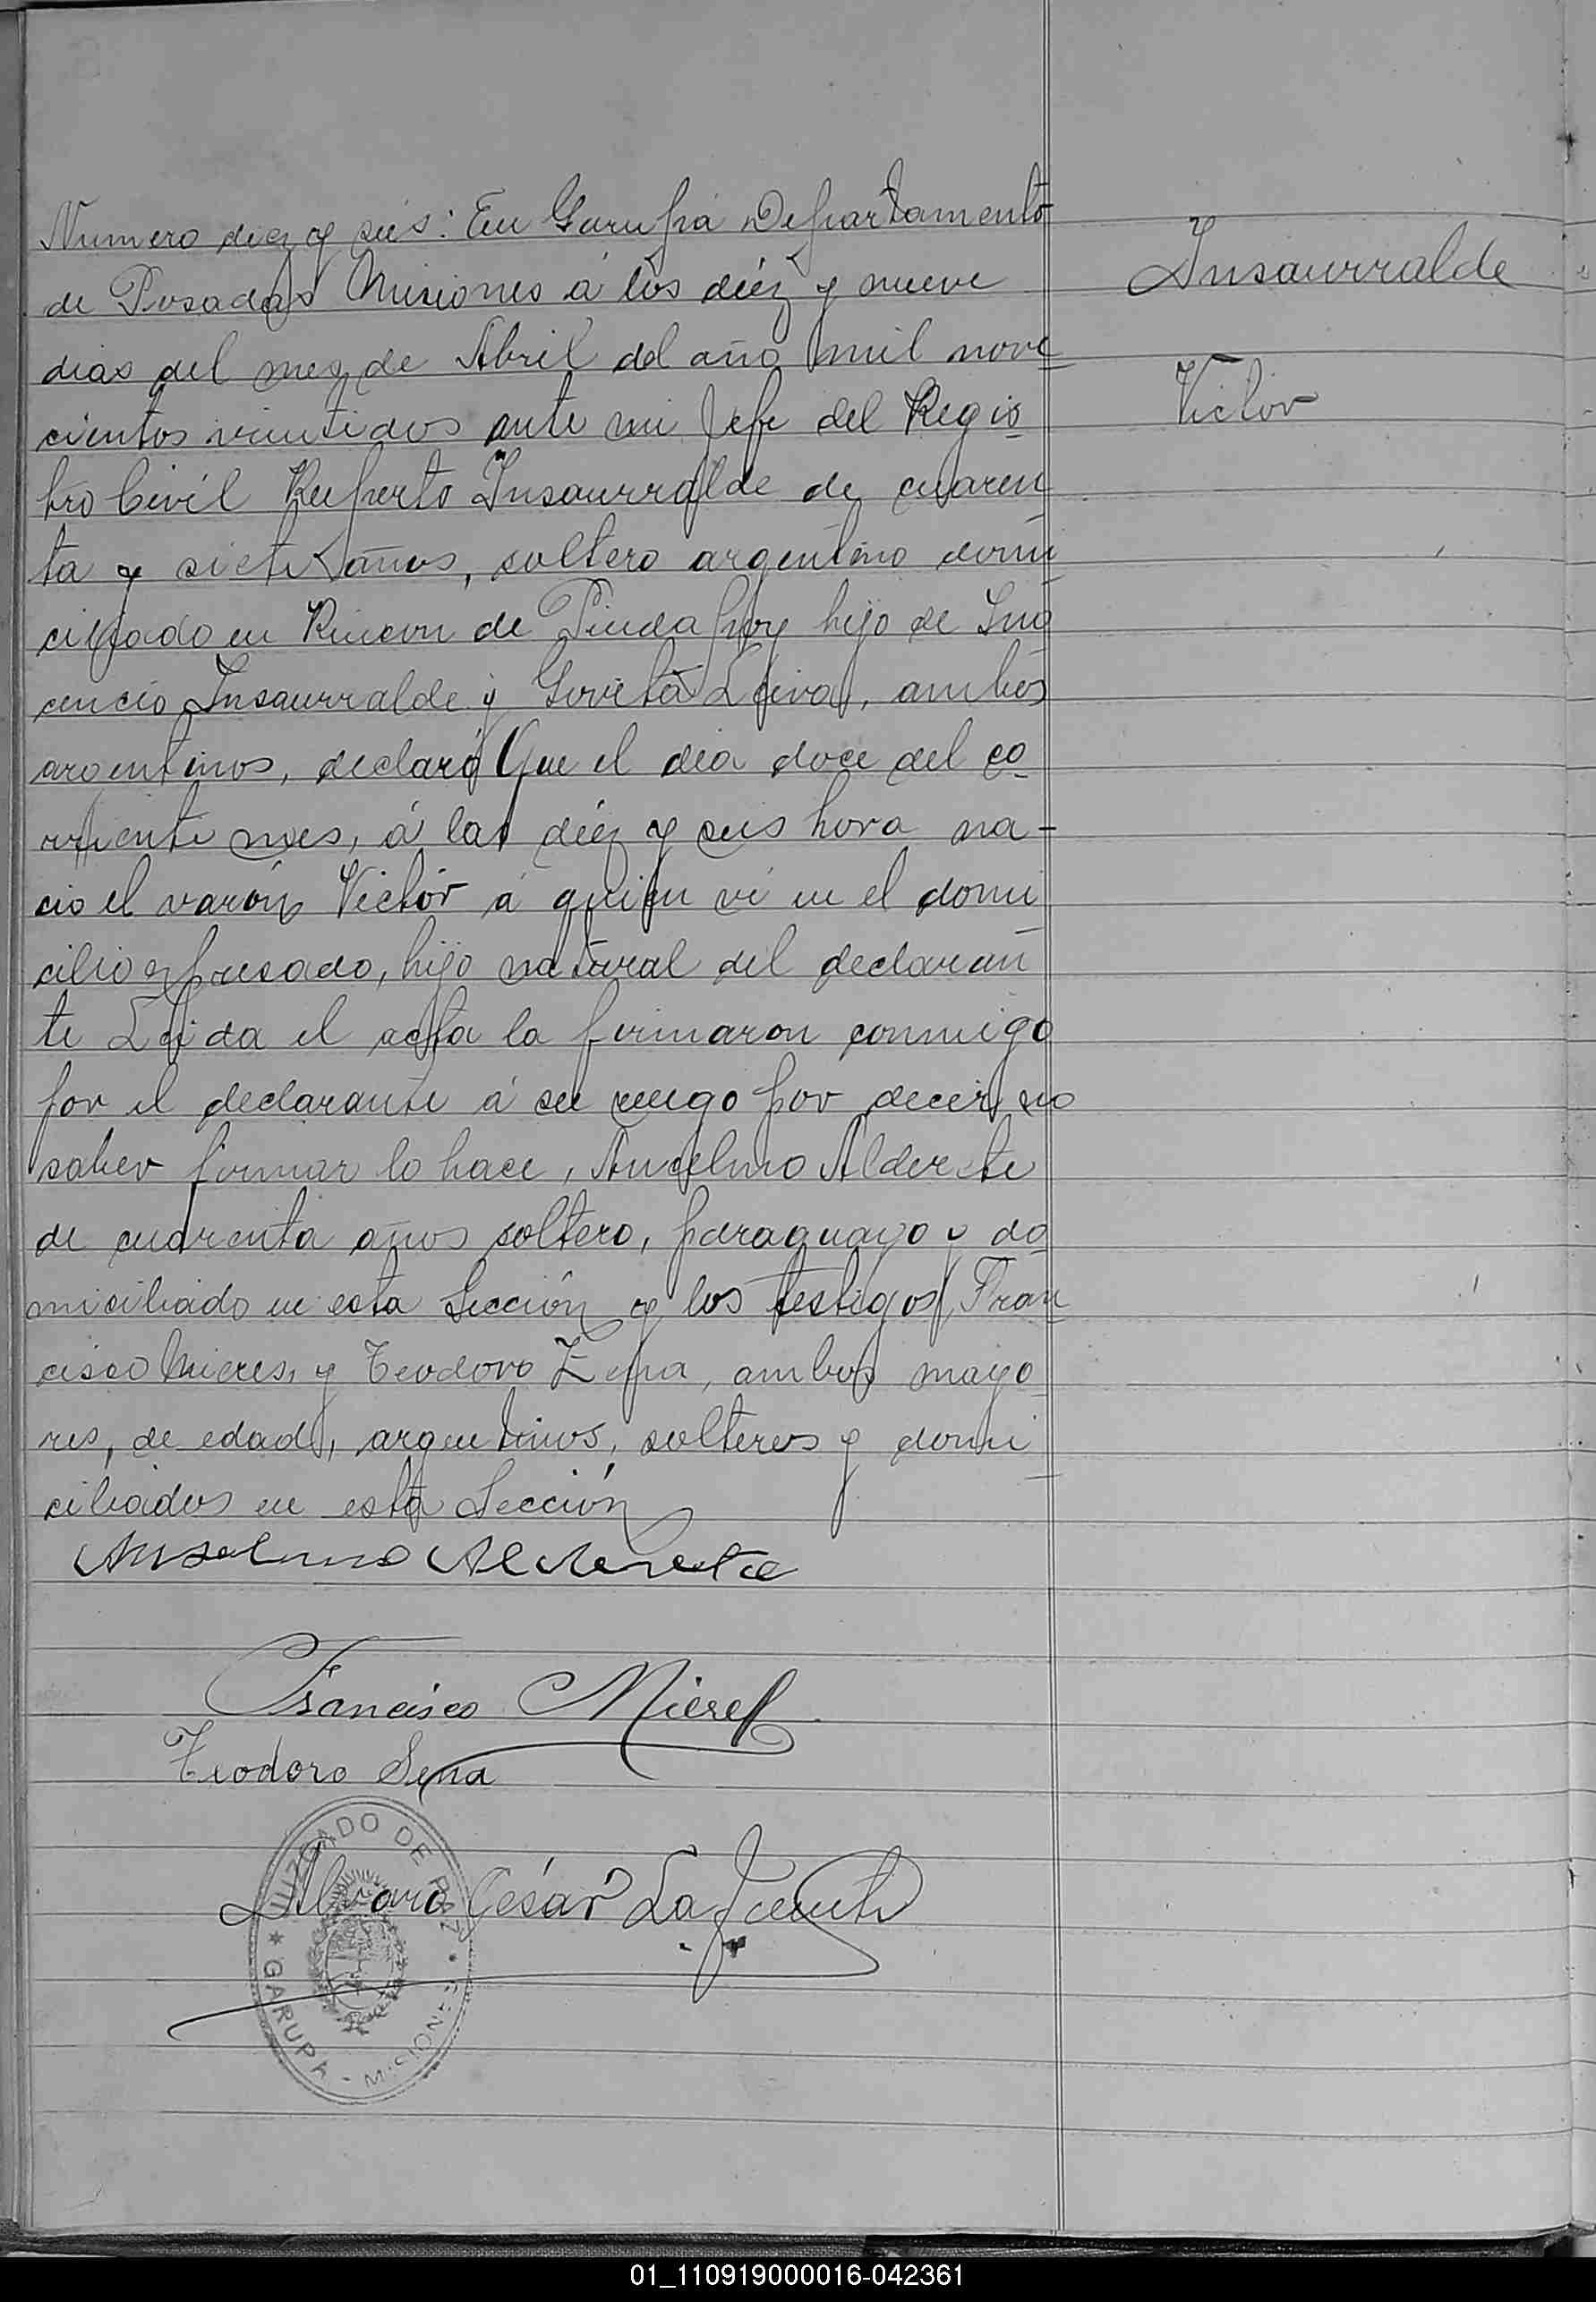 Numero diez y seis: En Garupá Departamento
de Posadas Misiones á los diéz y nueve
dias del mes de Abril del año mil nove
cientos veintidos ante mi Jefe del Regis
tro Civil Ruperto Insaurralde de cuaren
ta y siete años, soltero argentino domi
ciliado en Rincon de Pindapoy hijo de Ino
cencio Insaurralde y Leiva, ambos
argentinos, declaró Que el dia doce del co
rriente mes, á las diéz y seis hora na-
cio el varón Victór á quien vi en el domi
cilio espresado, hijo natural del declaran
te Leida el acta la firmaron conmigo
por el declarante á su ruego por decir no
saber firmar lo hace, Anselmo Alderete
de cuarenta años soltero, paraguayo y do
miciliado en esta Sección y los testigos, Fran
cisco Mieres, y Teodoro Zena, ambos mayo
res, de edad, argentinos, solteros y domi
ciliados en esta Sección
Anselmo Alderete
Francisco Mieres
Teodoro Sena
Alvaro César
JUZGADO DE PAZ
* GARUPA - MISIONES *
Insaurralde
Victor
01_110919000016-042361